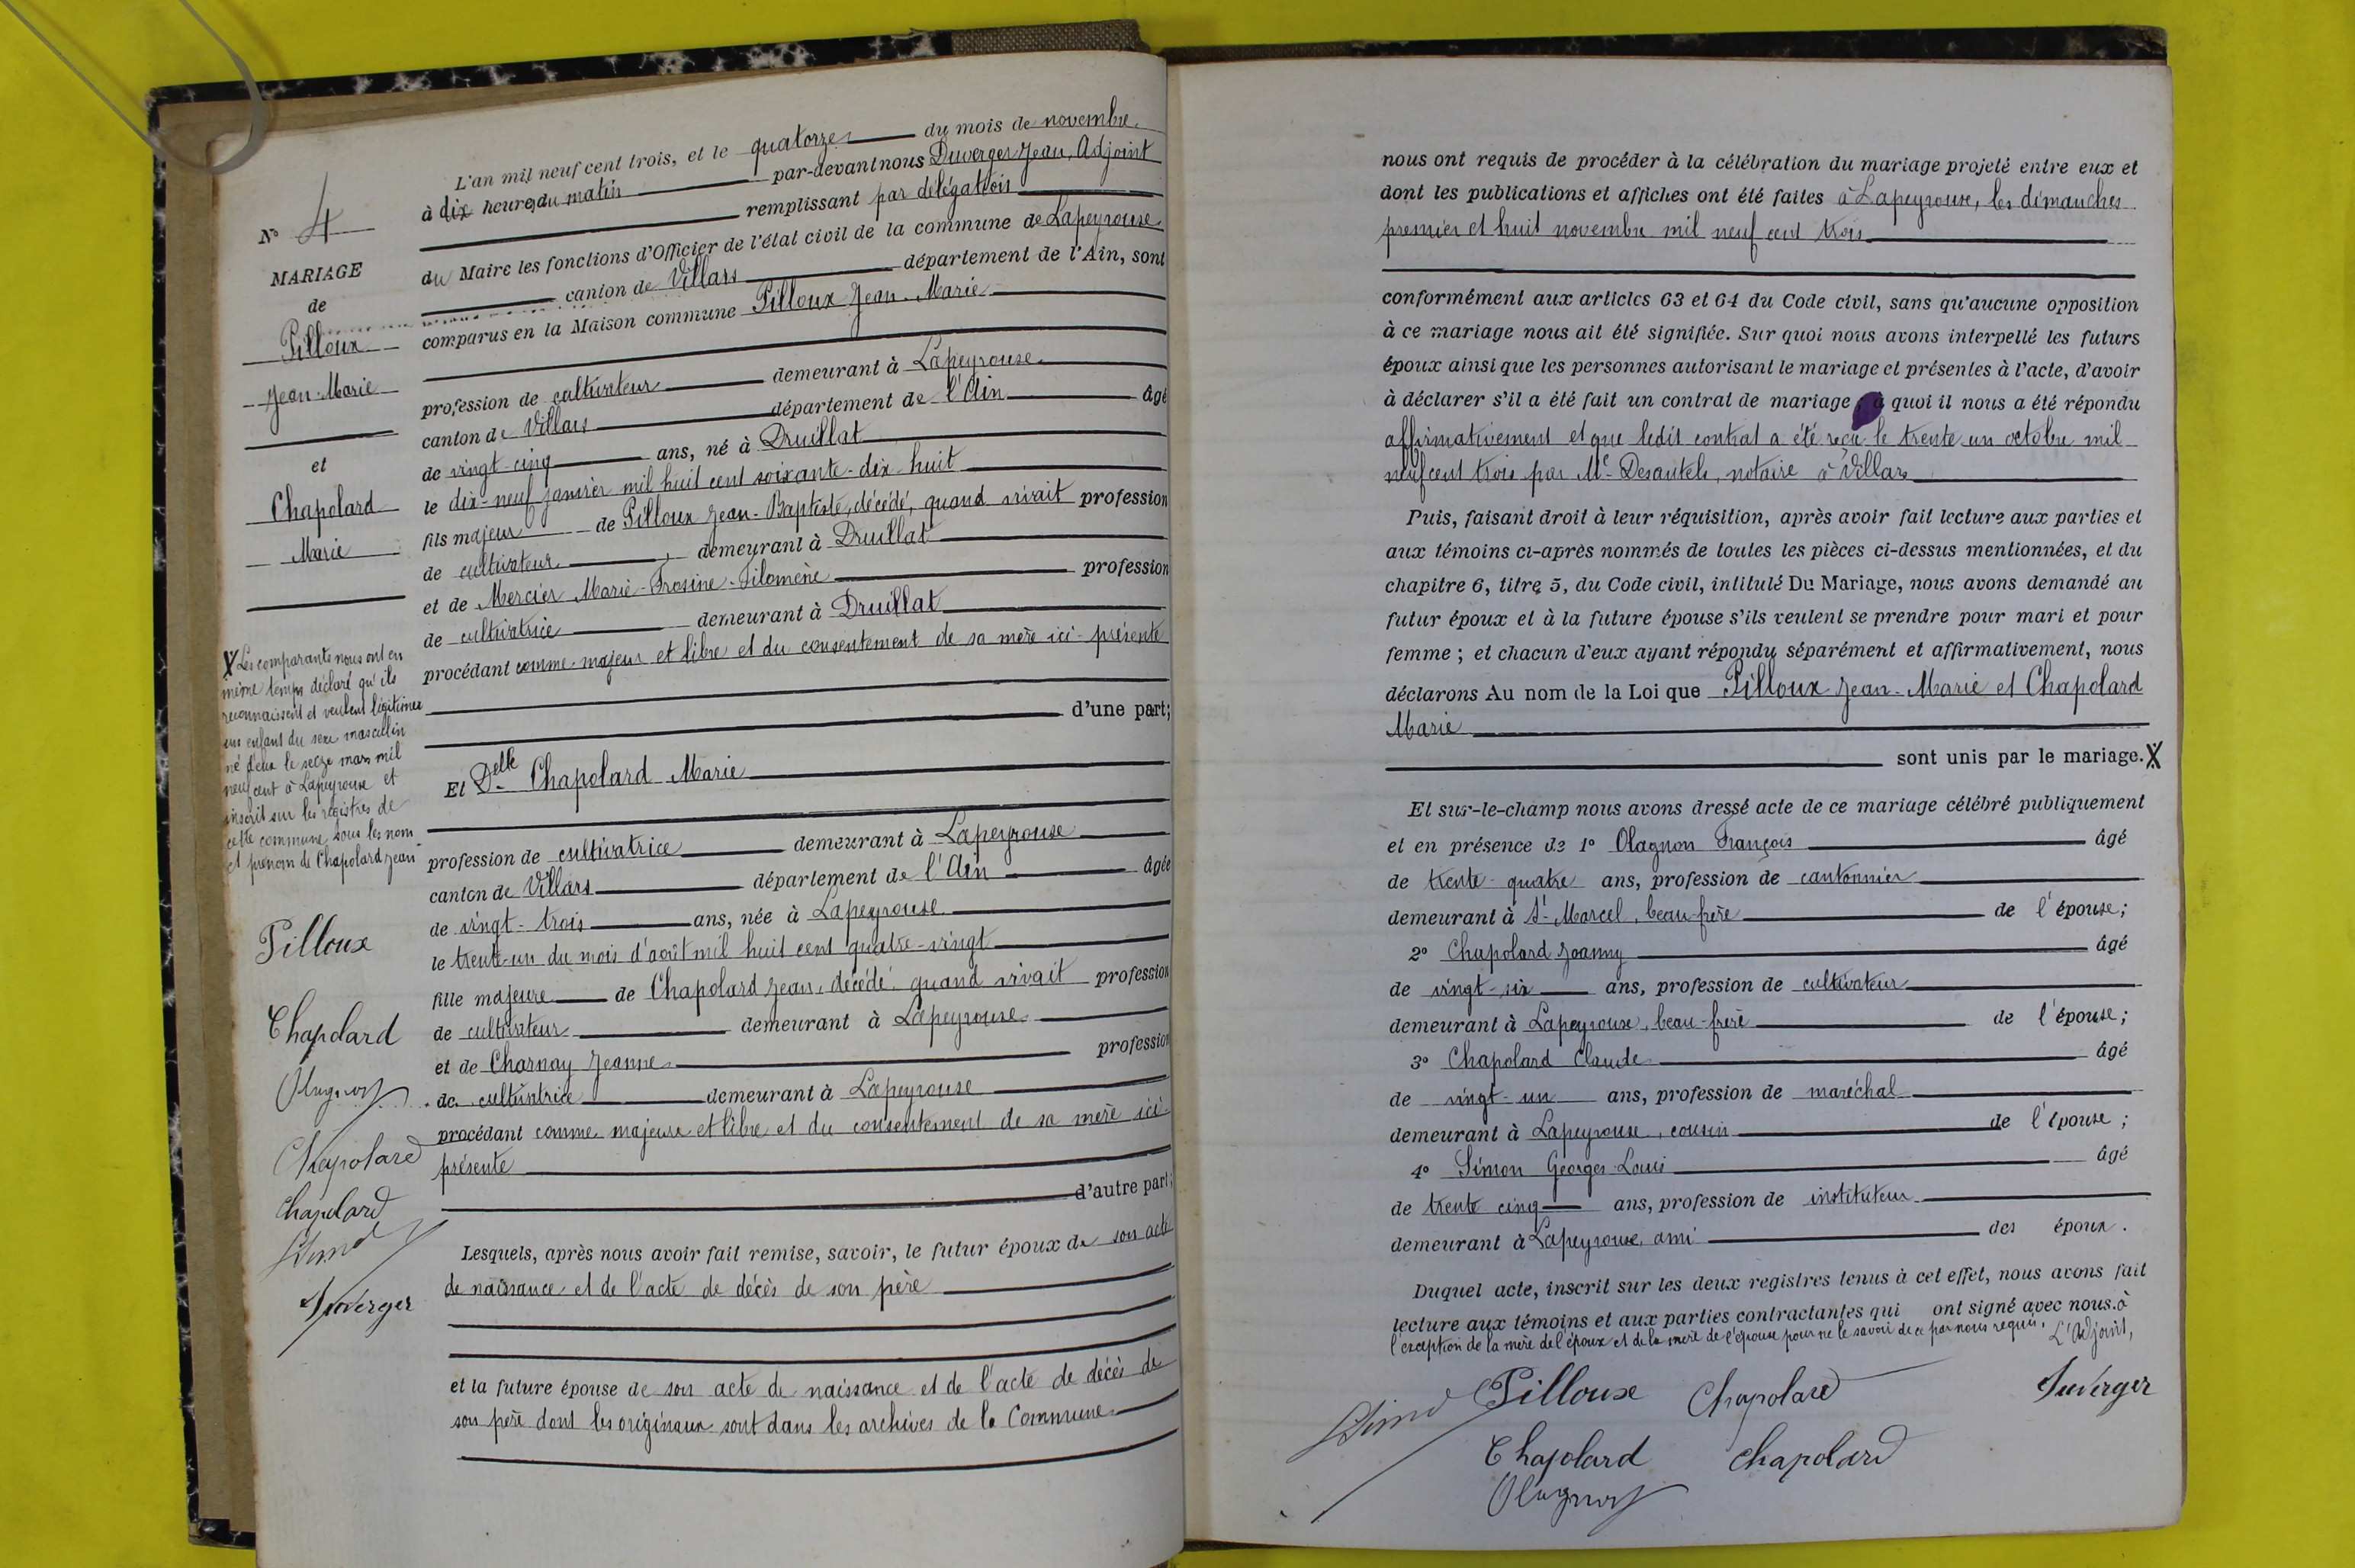 N° 4
MARIAGE
de
Pilloux
Jean-Marie
et
Chapolard
Marie
X Les comparants nous ont en
même temps déclaré qu'ils
reconnaissent et veulent légitimer
un enfant du sexe masculin
né d'eux le seize mars mil
neuf cent à Lapeyrouse et
inscrit sur les registres de
cette commune sous les nom
et prénom de Chapolard Jean
Pilloux
Chapolard
Olagnon
Chapolard
Chapolard
Simon
Duverger
L'an mil neuf cent trois, et le quatorze du mois de novembre
à dix heures du matin par-devant nous Duverger Jean, Adjoint
remplissant par délégation
du Maire les fonctions d'Officier de l'état civil de la commune de Lapeyrouse
canton de Villars département de l'Ain, sont
comparus en la Maison commune Pilloux Jean-Marie
profession de cultivateur demeurant à Lapeyrouse
canton de Villars département de l'Ain âgé
de vingt-cinq ans, né à Druillat
le dix-neuf janvier mil huit cent soixante-dix-huit
fils majeur de Pilloux Jean-Baptiste, décédé, quand vivait profession
de cultivateur, demeurant à Druillat
et de Mercier Marie-Frosine-Filomène profession
de cultivatrice demeurant à Druillat
procédant comme majeur et libre et du consentement de sa mère ici-présente
d'une part;
Et Delle Chapolard Marie
profession de cultivatrice demeurant à Lapeyrouse
canton de Villars département de l'Ain âgée
de vingt-trois ans, née à Lapeyrouse
le trente-un du mois d'août mil huit cent quatre-vingt
fille majeure de Chapolard Jean, décédé, quand vivait profession
de cultivateur demeurant à Lapeyrouse
et de Charnay Jeanne profession
de cultivatrice demeurant à Lapeyrouse
procédant comme majeure et libre et du consentement de sa mère ici-
présente
d'autre part;
Lesquels, après nous avoir fait remise, savoir, le futur époux de son acte
de naissance et de l'acte de décès de son père
et la future épouse de son acte de naissance et de l'acte de décès de
son père dont les originaux sont dans les archives de la Commune
nous ont requis de procéder à la célébration du mariage projeté entre eux et
dont les publications et affiches ont été faites à Lapeyrouse, les dimanches
premier et huit novembre mil neuf cent trois
conformément aux articles 63 et 64 du Code civil, sans qu'aucune opposition
à ce mariage nous ait été signifiée. Sur quoi nous avons interpellé les futurs
époux ainsi que les personnes autorisant le mariage et présentes à l'acte, d'avoir
à déclarer s'il a été fait un contrat de mariage, à quoi il nous a été répondu
affirmativement et que ledit contrat a été reçu le trente un octobre mil
neuf cent trois par Me Desautels, notaire à Villars
Puis, faisant droit à leur réquisition, après avoir fait lecture aux parties et
aux témoins ci-après nommés de toutes les pièces ci-dessus mentionnées, et du
chapitre 6, titre 5, du Code civil, intitulé Du Mariage, nous avons demandé au
futur époux et à la future épouse s'ils veulent se prendre pour mari et pour
femme ; et chacun d'eux ayant répondu séparément et affirmativement, nous
déclarons Au nom de la Loi que Pilloux Jean-Marie et Chapolard
Marie
sont unis par le mariage. X
Et sur-le-champ nous avons dressé acte de ce mariage célébré publiquement
et en présence de 1° Olagnon François âgé
de trente-quatre ans, profession de cantonnier
demeurant à St-Marcel, beau-frère de l'épouse;
2° Chapolard Joanny âgé
de vingt-six ans, profession de cultivateur
demeurant à Lapeyrouse, beau-frère de l'épouse;
3° Chapolard Claude âgé
de vingt-un ans, profession de maréchal
demeurant à Lapeyrouse, cousin de l'épouse;
4° Simon Georges-Louis âgé
de trente cinq ans, profession de instituteur
demeurant à Lapeyrouse, ami des époux.
Duquel acte, inscrit sur les deux registres tenus à cet effet, nous avons fait
lecture aux témoins et aux parties contractantes qui ont signé avec nous à
l'exception de la mère de l'époux et de la mère de l'épouse pour ne le savoir de ce par nous requis. L'Adjoint,
Simon Pilloux Chapolard Duverger
Chapolard Chapolard
Olagnon